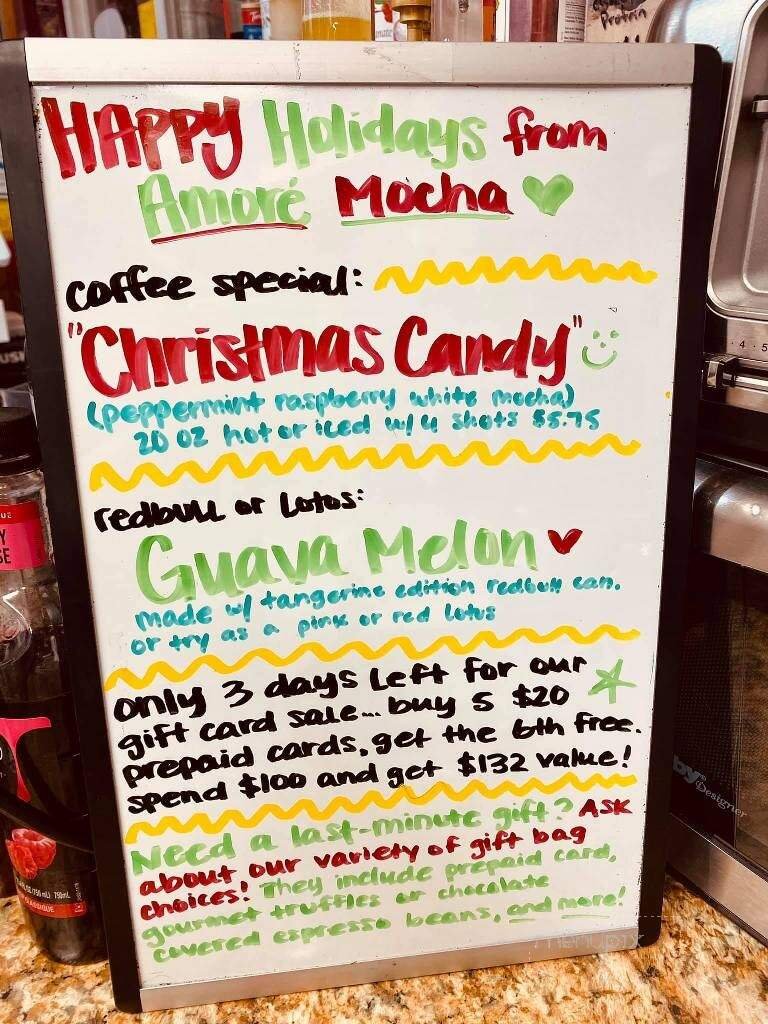 Protein
HAPPY Holidays from
Amoré Mocha
coffee special:
"Christmas Candy"
(peppermint raspberry white mocha)
20 oz hot or iced w/ 4 shots $5.75
redbull or Lotus:
Guava Melon
made w/ tangerine edition redbull can.
or try as a pink or red lotus
only 3 days left for our
gift card sale... buy 5 $20
prepaid cards, get the 6th free.
spend $100 and get $132 value!
Need a last-minute gift? ASK
about our variety of gift bag
choices! They include prepaid card,
gourmet truffles or chocolate
covered espresso beans, and more!
Designer
750mL
menupix